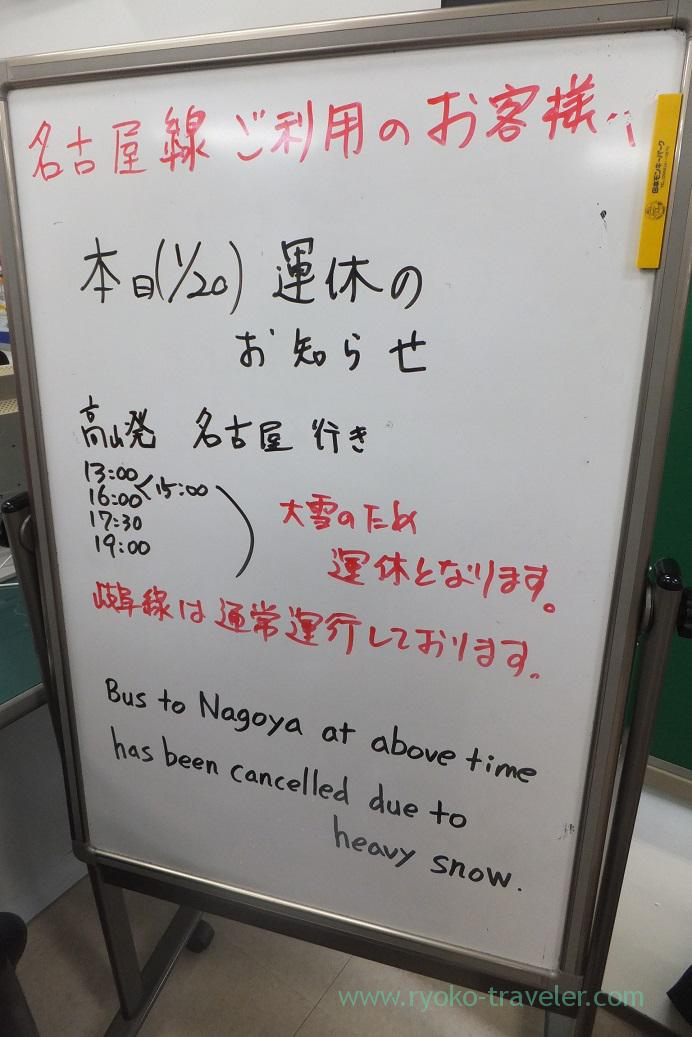 名古屋線ご利用のお客様へ
本日(1/20)運休の
お知らせ
高山発 名古屋行き
13:00
16:00<15:00
17:30
19:00
大雪のため
運休となります。
岐阜線は通常運行しております。
Bus to Nagoya at above time
has been cancelled due to
heavy snow.
日本モンキーパーク
www.ryoko-traveler.com